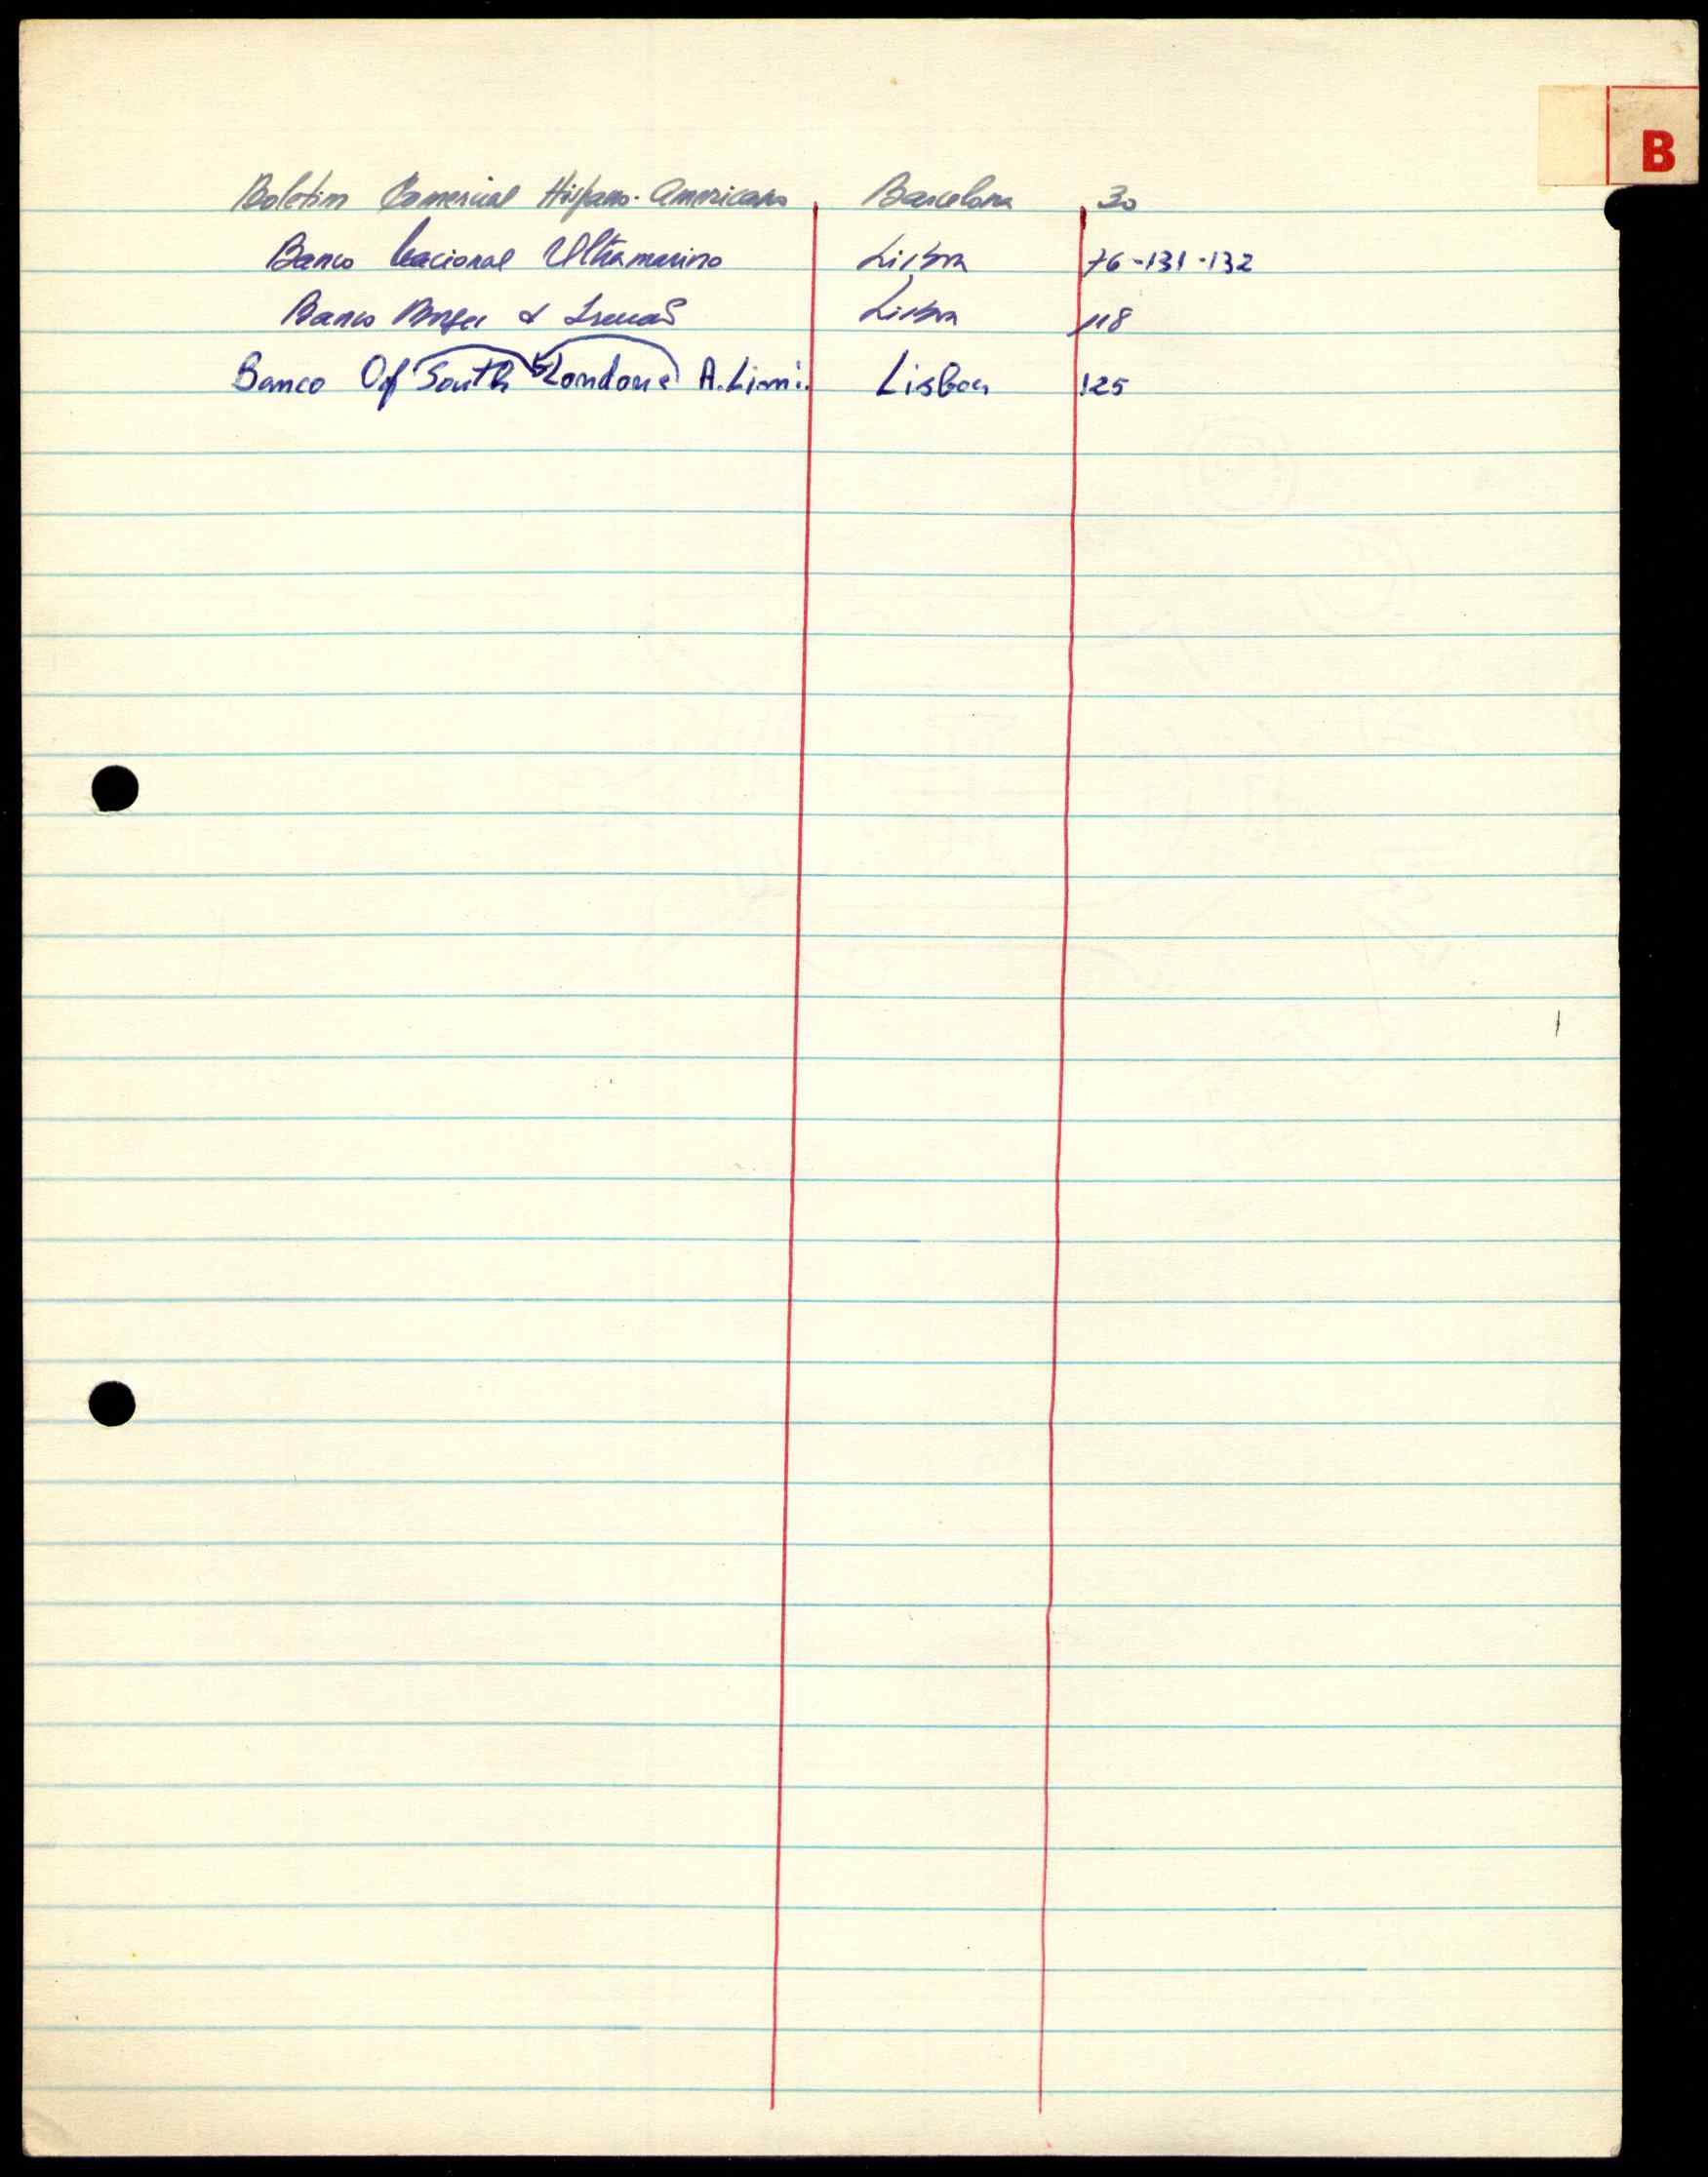 B
Boletim Comercial Hispano-Americano Barcelona 30
Banco Nacional Ultramarino Lisboa 76-131-132
Banco Borges & Irmão Lisboa 118
Banco Of South Londone A. Limi. Lisboa 125